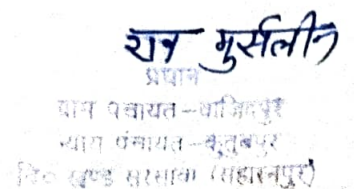 राव मुर्सलीन
प्रधान
ग्राम पंचायत-वाजिदपुर
न्याय पंचायत-कुतुबपुर
वि० खण्ड सरसावा (सहारनपुर)